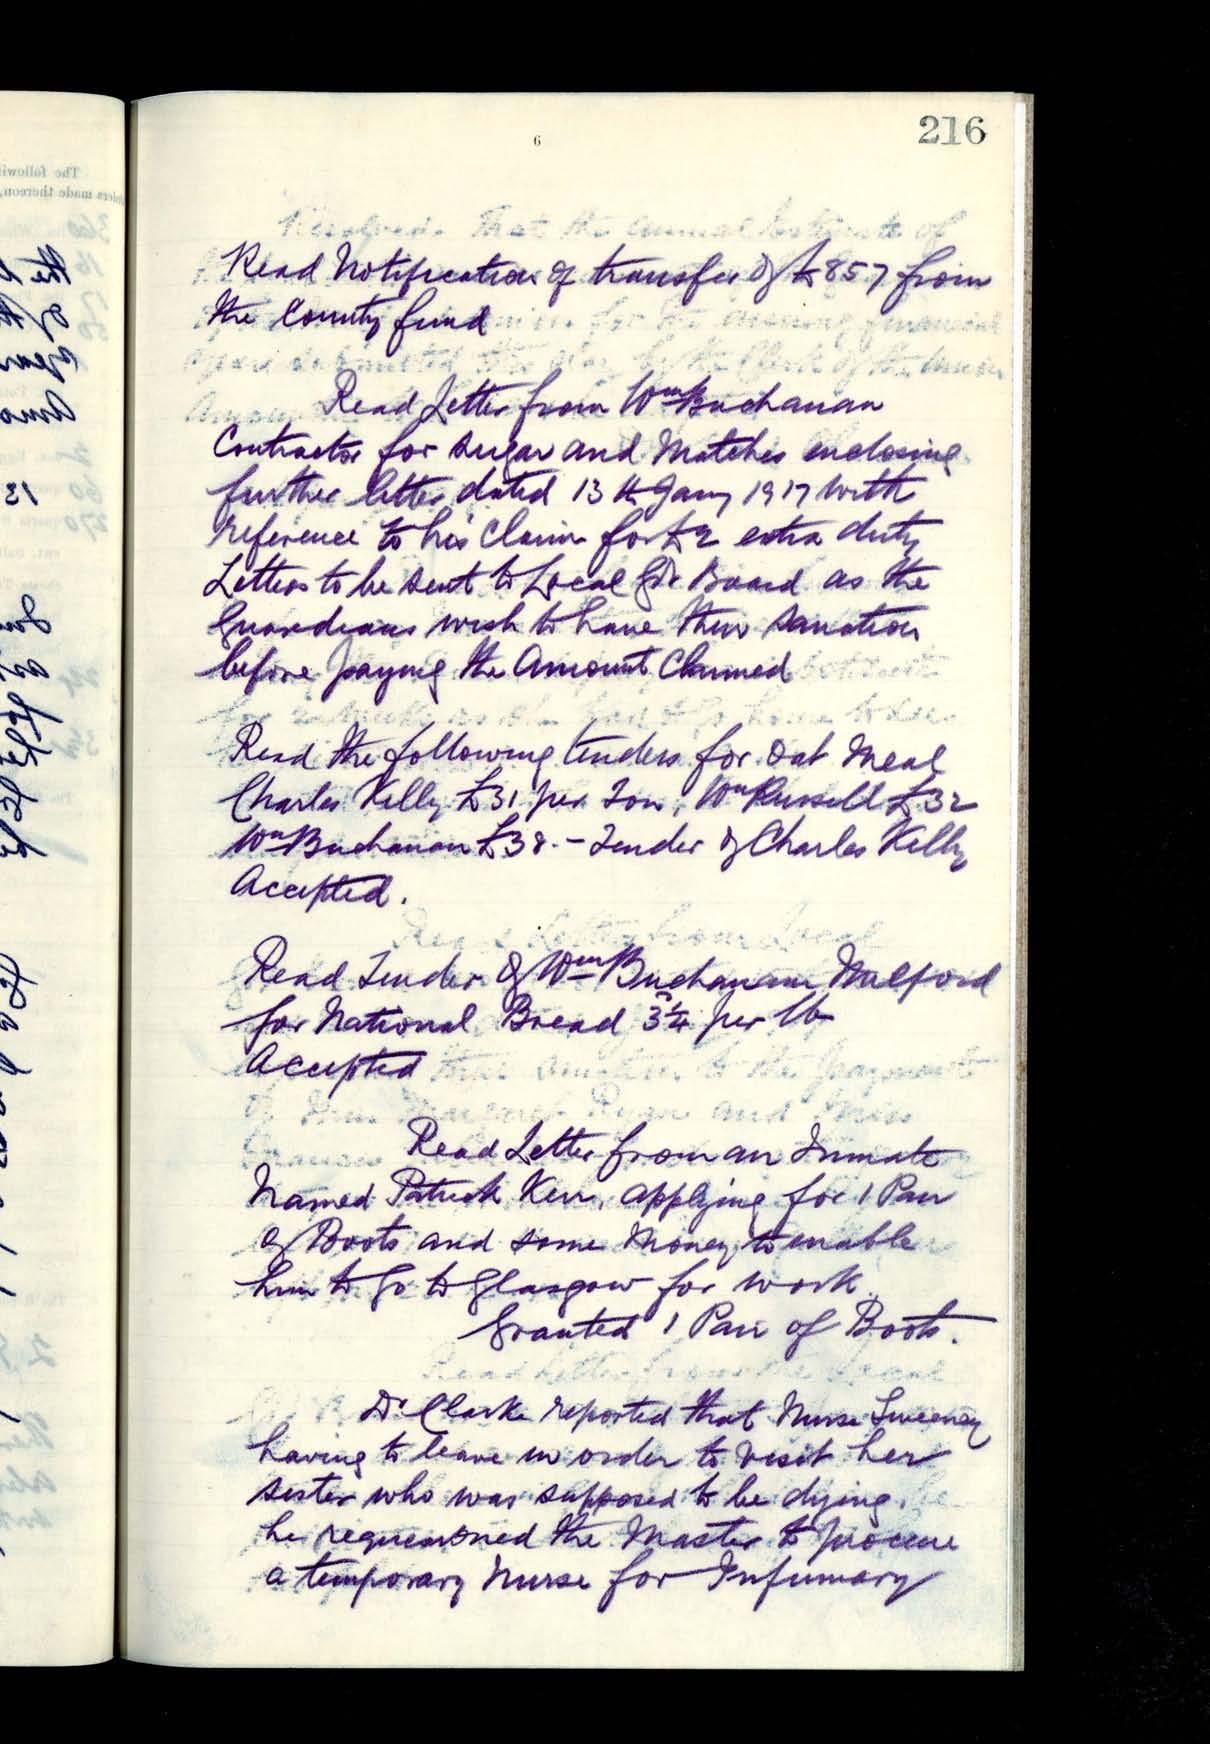 216
6
Read Notification of transfer of £857 from
the County fund
Read Letter from Wm Buchanan
Contractor for Sugar and Matches enclosing
further letter dated 13th Jany 1917 with
reference to his Claim for £2 extra duty
Letters to be sent to Local Gt Board as the
Guardians wish to have their sanction
before paying the Amount Claimed
Read the following tenders for Oat Meal
Charles Kelly £31 per Ton, Wm Russell £32
Wm Buchanan £38. – Tender of Charles Kelly
Accepted.
Read Tender of Wm Buchanan Milford
for National Bread 3¼ per lb
Accepted
Read Letter from an Inmate
Named Patrick Kerr, applying for 1 Pair
of Boots and some Money to enable
him to Go to Glasgow for work.
Granted 1 Pair of Boots.
Dr Clarke reported that Nurse Sweeney
having to leave in order to visit her
sister who was supposed to be dying.
he requisitioned the Master to procure
a temporary Nurse for Infirmary